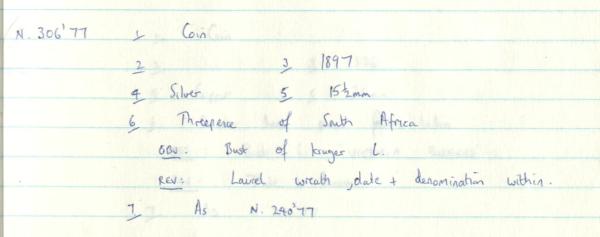 N. 306'77 1 Coin
2 3 1897
4 Silver 5 15½mm
6 Threepence of South Africa
OBV: Bust of Kruger L.
REV: Laurel wreath, date + denomination within.
7 As N. 240'77